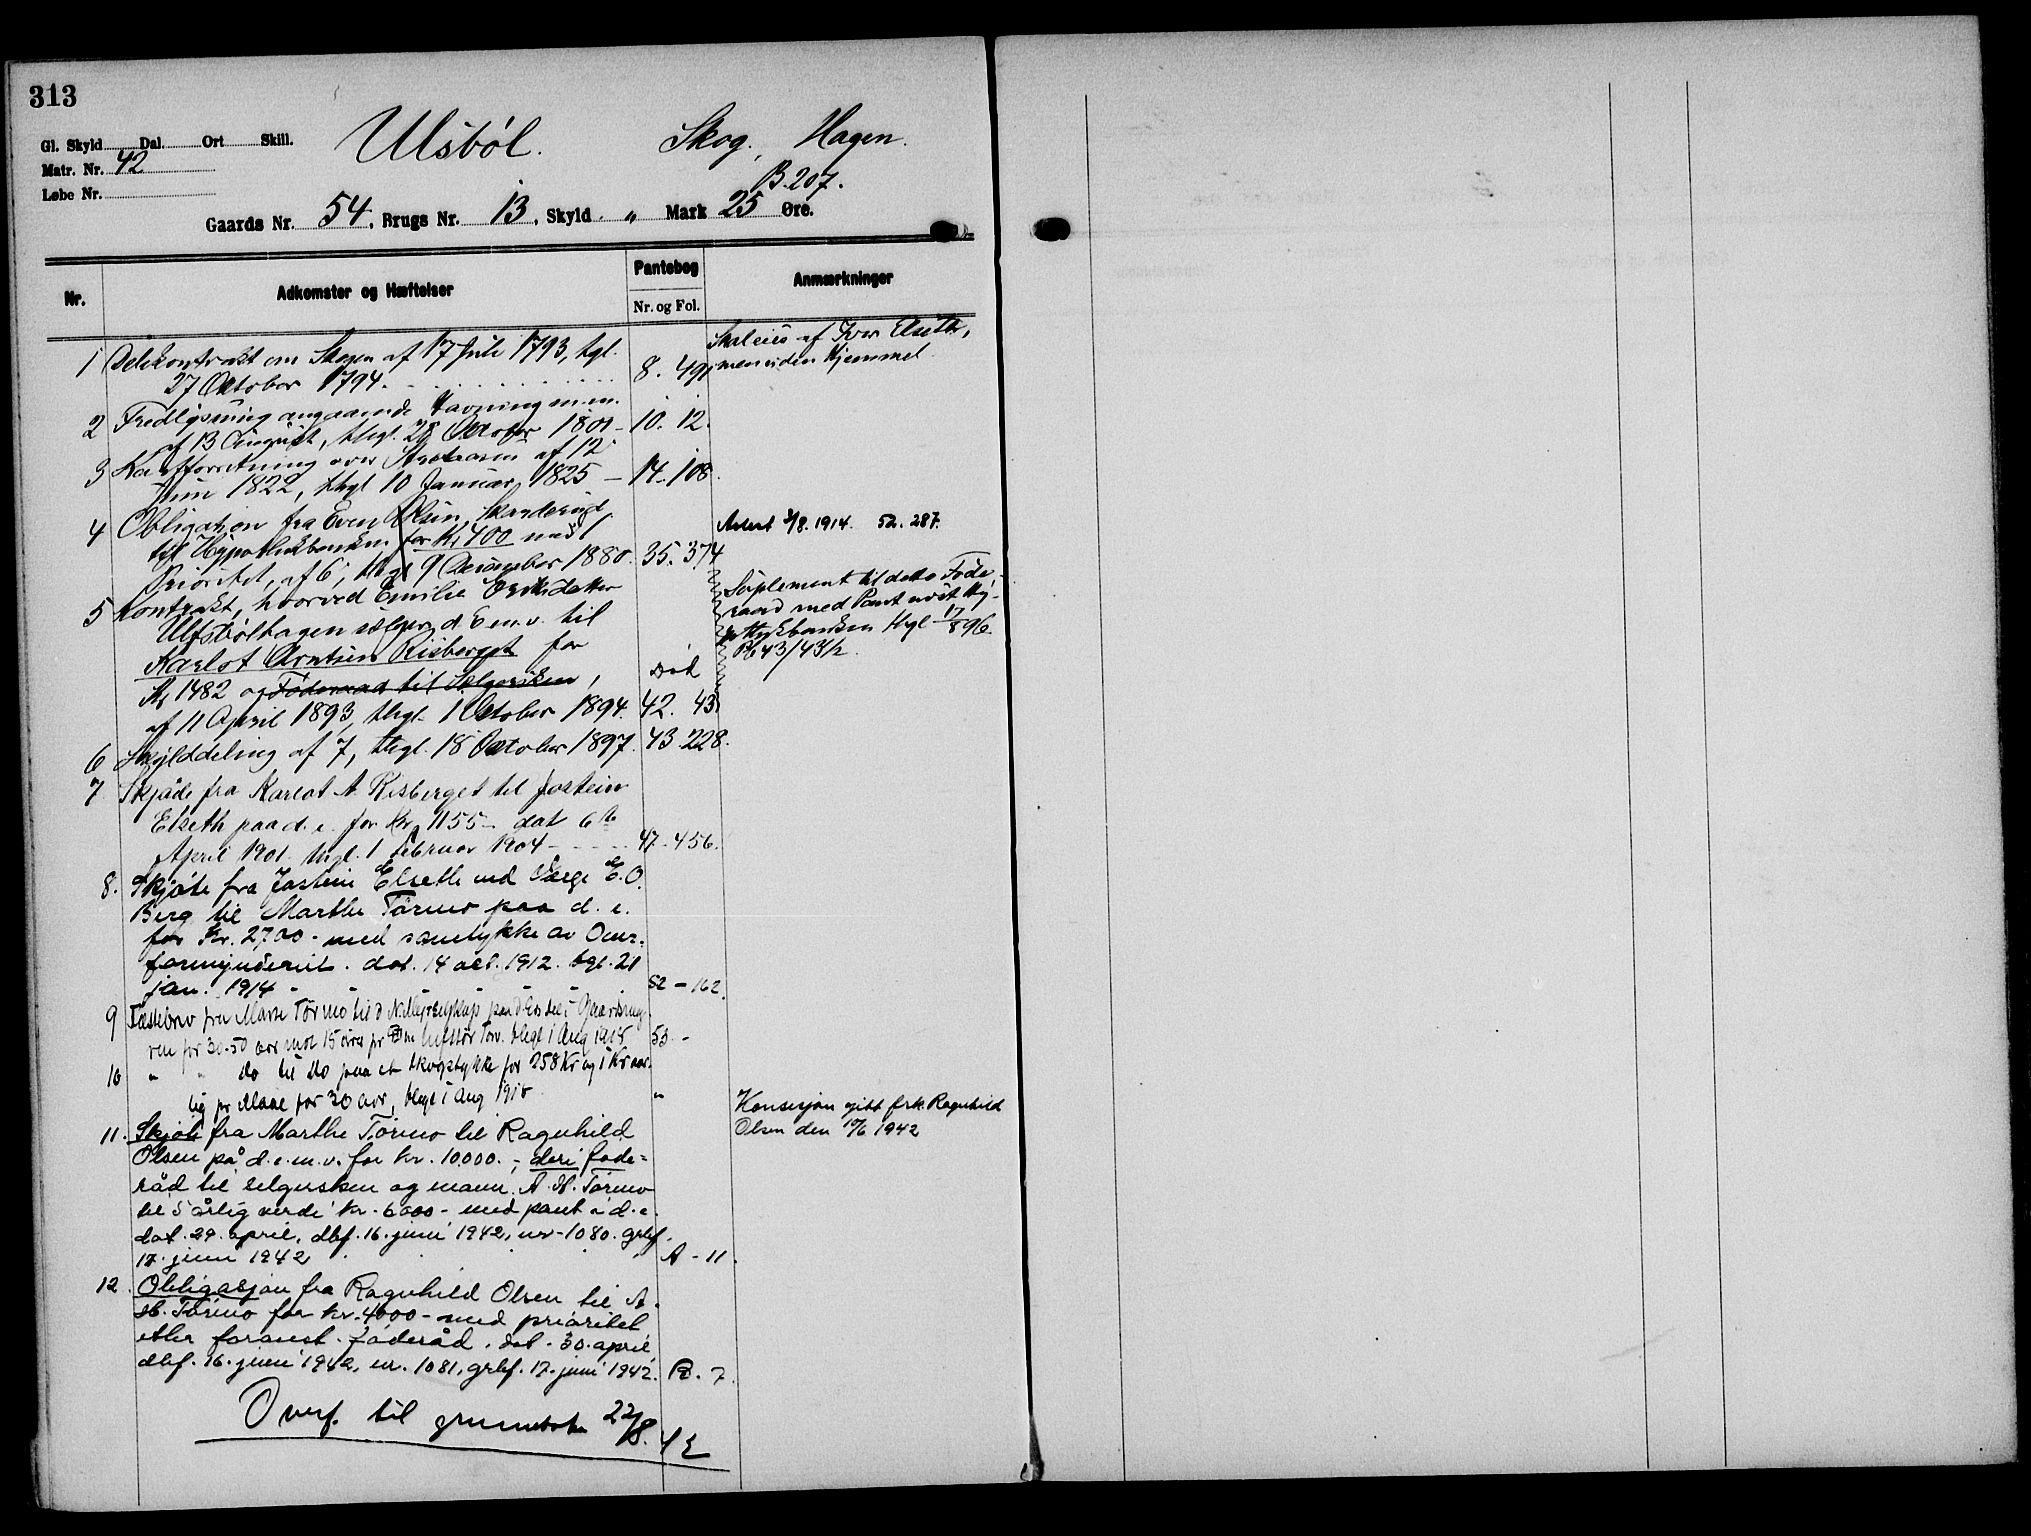 313
Gl. Skyld Dal. Ort Skill.
Matr. Nr. 42
Løbe Nr.
Ulsböl. Skog, Hagen.
B. 207.
Gaards Nr. 54, Brugs Nr. 13, Skyld " Mark 25 Øre.
Nr. Adkomster og Hæftelser Pantebog Nr. og Fol. Anmærkninger
1 Delekontrakt om Skogen af 17 Juli 1793, tgl.
27 Oktober 1794. 8. 491
Skal eies af Iver Elseth,
men uden Hjemmel.
2 Fredlysning angaaende Havning m.m.
af 13 August, thgl. 28 Oktober 1801 - 10. 12.
3 forretning over af 12
Juni 1822, thgl 10 Januar 1825 - 14. 108.
4 Obligation fra Even Olsen
til Hypothekbanken for Kr 400 med
Prioritet, af 6, thgl 9 December 1880. 35. 374
Avlest 3/8. 1914. 52. 287.
5 Kontrakt, hvorved Emilie
Ulfsbølhagen sælger d. E m. v. til
Karlot Arntsen Risberget for
Kr 1482 og Føderaad til Sælgersken,
af 11 April 1893, thgl. 1 Oktober 1894. 42. 43
Død
Suplement til dette Føde-
raad med Pant næst Hy-
pothekbanken thgl 17/8 96.
Pb 43/43½.
6 Skylddeling af 7, thgl. 18 Oktober 1897. 43. 228.
7 Skjøde fra Karlot A. Risberget til Jostein
Elseth paa d. e. for Kr 1155 - dat 6te
April 1901. thgl. 1 Februar 1904 - 47. 456.
8. Skjøte fra Jostein Elseth ved Værge E. O.
Berg til Marthe Tørmo paa d. e.
for Kr. 2700 - med samtykke av Over-
formynderiet. dat. 14 1912. tgl. 21
jan. 1914 " " " " 52 - 162.
9 Fæstebrev fra Marte Tørmo til
for 30-50 aar mot 15 øre pr Torv. thgl 1 Aug 1918 53 -
10 " " do til do paa et skogstykke for 258 Kr og 1 Kr aar-
lig pr Maal for 30 aar, thgl 1 Aug 1918 "
11. Skjøte fra Marthe Tørmo til Ragnhild
Olsen på d. e. m. v. for kr. 10.000.-, deri føde-
råd til selgersken og mann A. M. Tørmo
til 5 årlig verdi kr. 6000 - med pant i d. e.
dat. 29. april, dbf. 16. juni 1942, nr. 1080. grbf.
17. juni 1942 A - 11.
Konsesjon gitt frk. Ragnhild
Olsen den 10/6 1942
12. Obligasjon fra Ragnhild Olsen til A.
M. Tørmo for kr. 4000 - med prioritet
etter foranst. føderåd. dat. 30. april,
dbf. 16. juni 1942, nr. 1081, grbf. 17. juni 1942. B. 7.
Overf. til grunnbok 22/8. 42